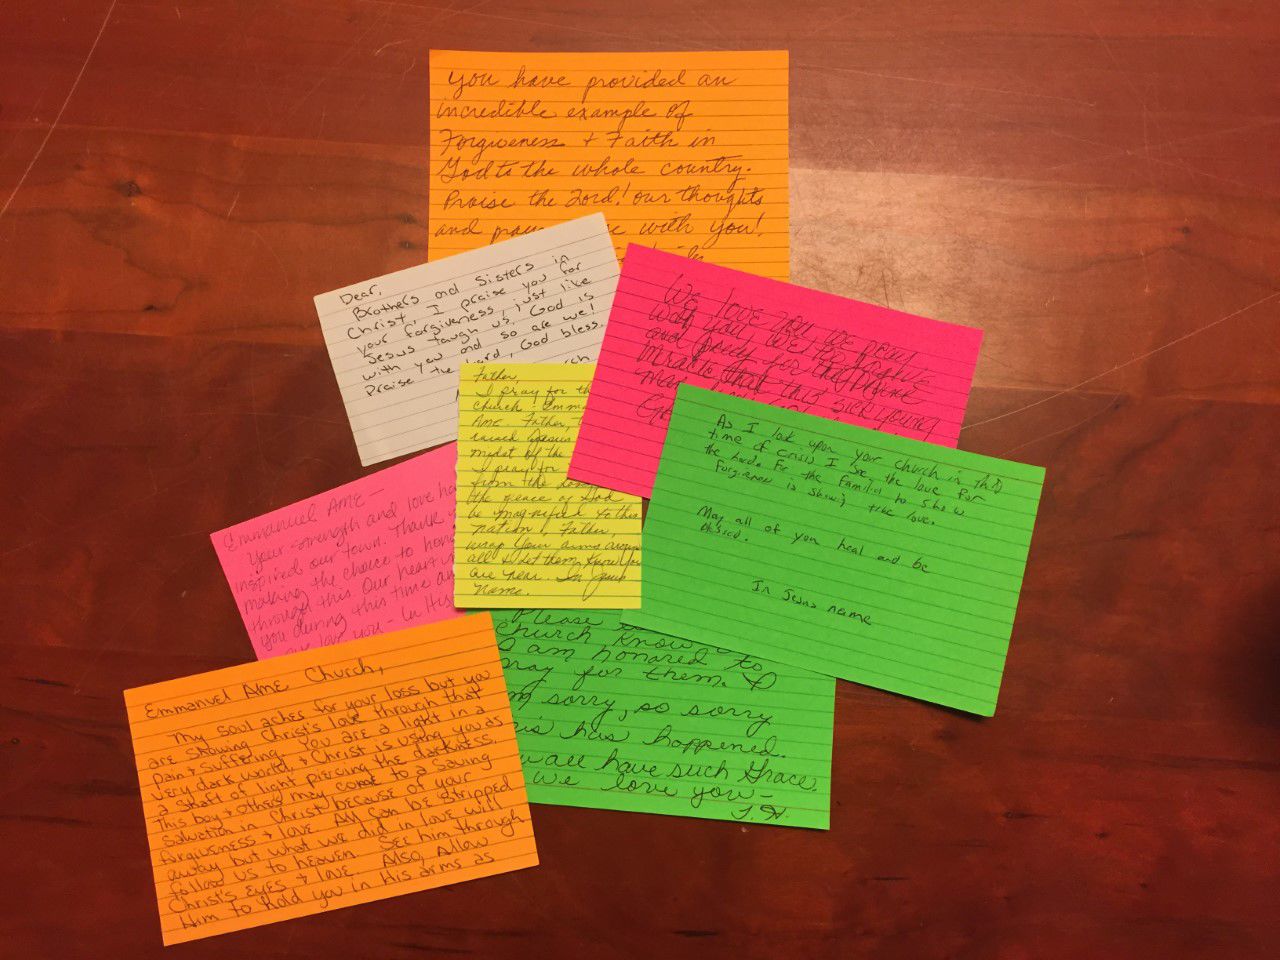 You have provided an
incredible example of
Forgiveness + Faith in
God to the whole country.
Praise the Lord! our thoughts
and with you!
Dear,
Brothers and Sisters in
Christ, I praise you for
your forgiveness, just like
Jesus taugh us. God is
with you and so are we!
Praise the Lord, God bless.
We love you we pray
with you. We too forgive
and pray for the Divine
miracle that this sick young
Father,
I pray for th
church - Emma
AME Father,
raised Jesus
midst of the
I pray for
from the
the peace of God
be magnified to this
nation, Father,
wrap your arms aroun
all & let them know you
are near. In Jesus
name.
As I look upon your church in this
time of crisis I see the love for
the lord. For the Families to show
Forgivness is showing true love.
May all of you heal and be
blessed.
In Jesus name
Emmanuel AME -
Your strength and love ha
inspired our town. Thank y
making the choice to hono
through this. Our heart
you during this time an
we love you - In His
Please
church know
I am honored to
pray for them. &
sorry, so sorry
his has happened.
all have such Grace.
we love you -
T.H.
Emmanuel AME Church,
My soul aches for your loss but you
are showing Christ's love through that
pain & suffering. You are a light in a
very dark world, & Christ is using you as
a shaft of light piercing the darkness.
This boy & others may come to a saving
salvation in Christ because of your
forgiveness & love. All can be stripped
away but what we did in love will
follow us to heaven. See him through
Christ's eyes & love. Also, Allow
Him to hold you in His arms as